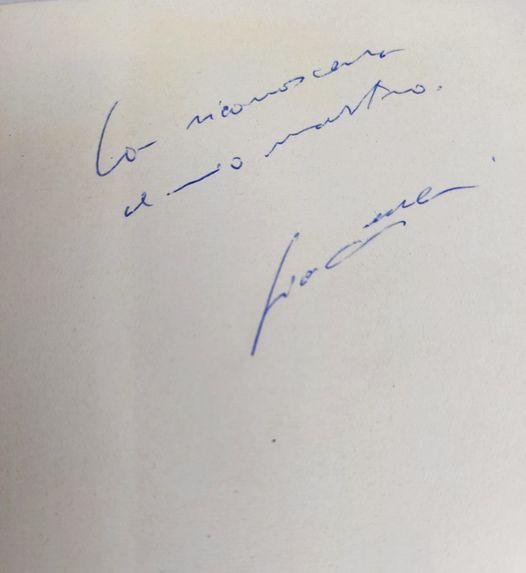 Con riconoscenza
al mio maestro.